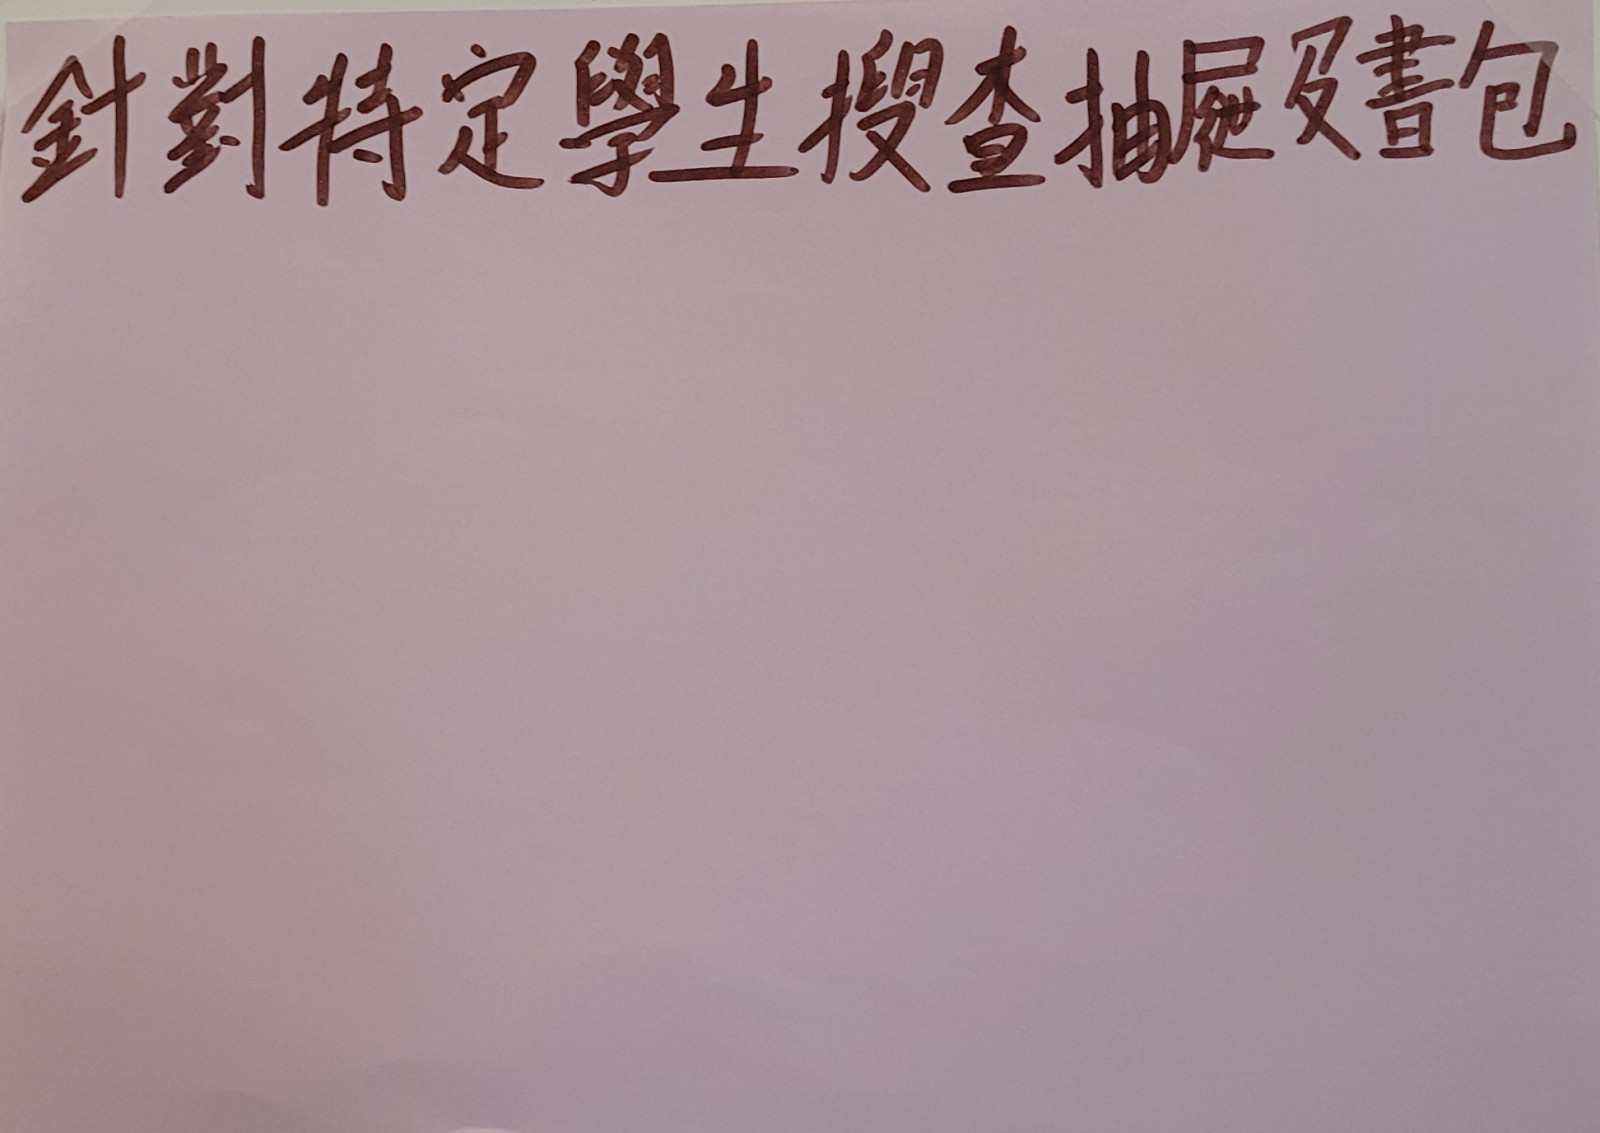 針對特定學生搜查抽屜及書包